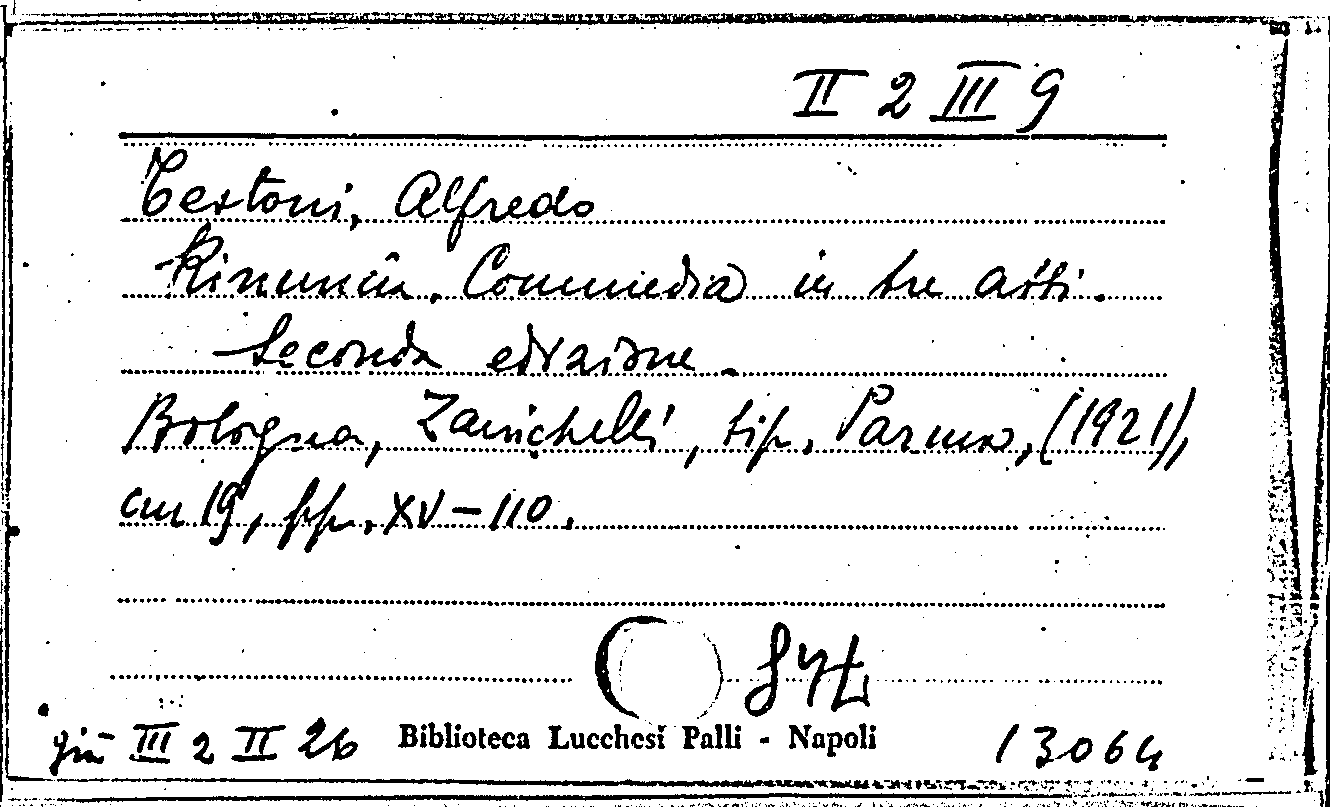 II 2 III 9
Testoni, Alfredo
Rinuncia. Commedia in tre atti.
Seconda edizione.
Bologna, Zanichelli, tip. Parma, (1921),
cm 19, pp. XV-110.
già III 2 II 26 Biblioteca Lucchesi Palli - Napoli 13064